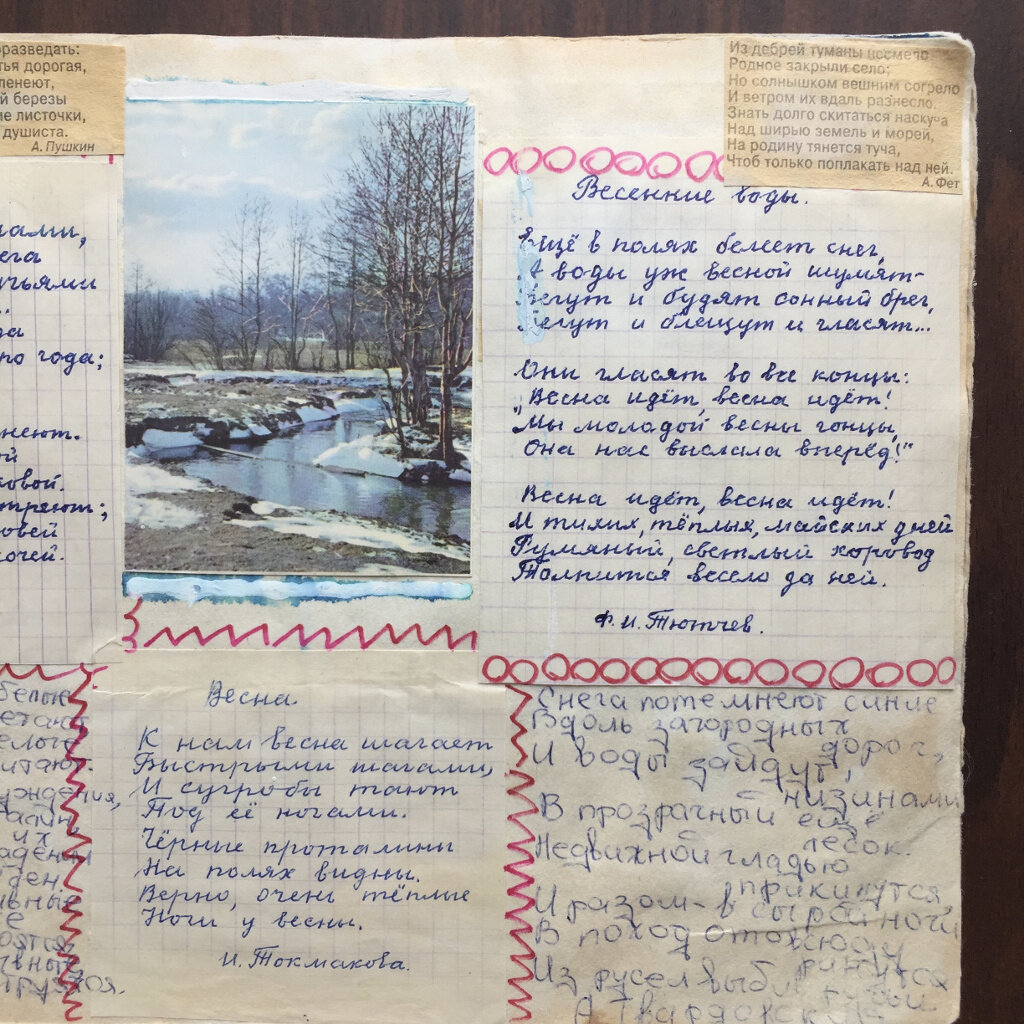 оразведать:
тья дорогая,
ленеют,
й березы
ие листочки,
душиста.
А. Пушкин
Из дебрей туманы несмело
Родное закрыли село;
Но солнышком вешним согрело
И ветром их вдаль разнесло.
Знать долго скитаться наскуча
Над ширью земель и морей,
На родину тянется туча,
Чтоб только поплакать над ней.
А. Фет
чами,
ега
учьями
по года;
неют.
ой
ковой.
стреют;
ловей
ночей.
Весенние воды.
Ещё в полях белеет снег,
А воды уж весной шумят-
Бегут и будят сонный брег,
Бегут и блещут и гласят...
Они гласят во все концы:
„Весна идёт, весна идёт!
Мы молодой весны гонцы,
Она нас выслала вперёд!"
Весна идёт, весна идёт!
И тихих, тёплых, майских дней
Румяный, светлый хоровод
Толпится весело за ней.
Ф.И. Тютчев.
белые
етают
тают.
уждения,
их
ден.
вные
Весна.
К нам весна шагает
Быстрыми шагами,
И сугробы тают
Под её ногами.
Чёрные проталины
На полях видны.
Верно, очень тёплые
Ноги у весны.
И. Токмакова.
Снега потемнеют синие
Вдоль загородных
дорог,
И воды зайдут
низинами
В прозрачный ещё
лесок.
Недвижной гладью
прикинутся,
И разом - в сырой ночи
В поход отовсюду
ринутся
Из русел выбив ручьи
А Твардовский